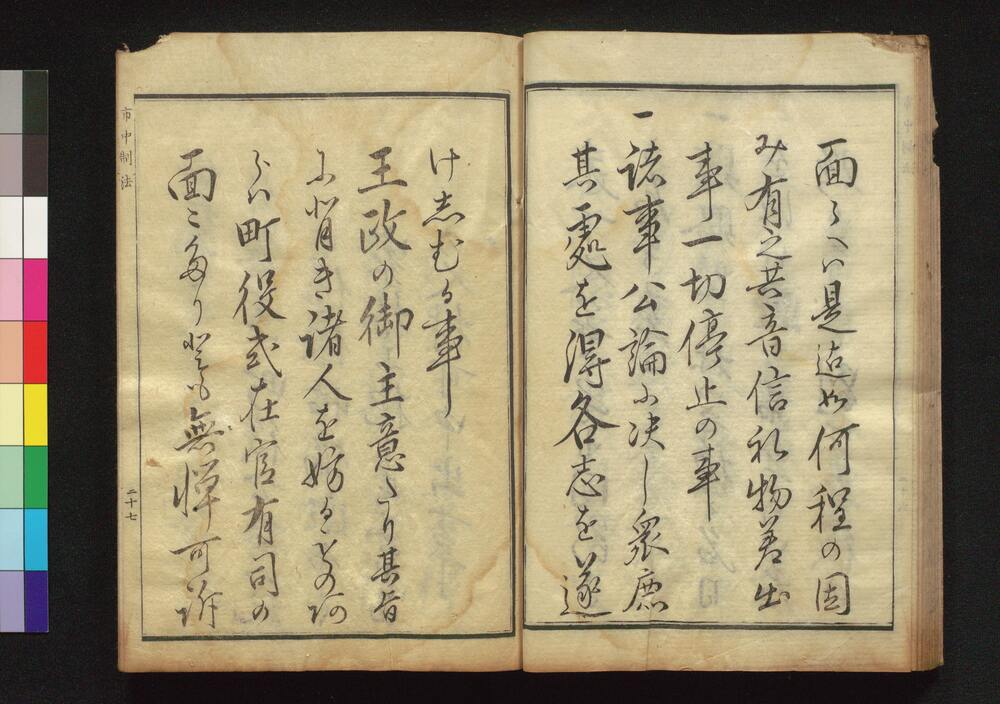 面々へハ是迄如何程の因
み有之共音信礼物差出
事一切停止の事
一諸事公論ニ决し衆庶
其處を得各志を遂
け志むる事ハ
王政の御主意なり其旨
ニ背き諸人を妨るもの阿
らハ町役或在官有司の
面々多り登も無憚可訴
市中制法
二十七